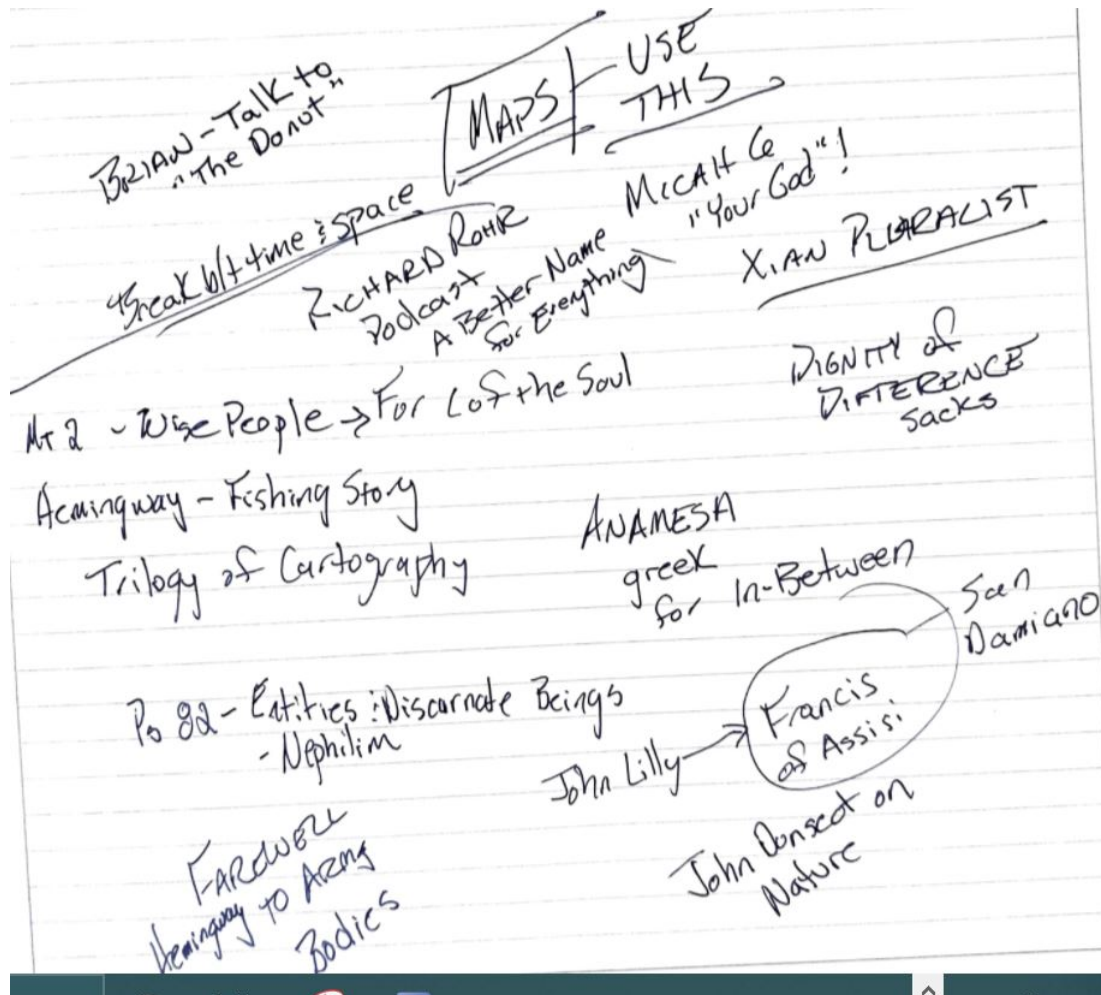 BRIAN - Talk to
"The Donut"
MAPS
USE
THIS
Break b/t time & space
RICHARD ROHR
Podcast
A Better Name
for Everything
MICAH 6
"Your God"!
XIAN PLURALIST
DIGNITY of
DIFFERENCE
Sacks
Mt 2 - Wise People → For L of the Soul
Hemingway - Fishing Story
Trilogy of Cartography
ANAMESA
greek
for In-Between
San
Damiano
Ps 82 - Entities & Discarnate Beings
- Nephilim
John Lilly
Francis
of Assisi
John on
Nature
FAREWELL
Hemingway to ARMS
Bodies